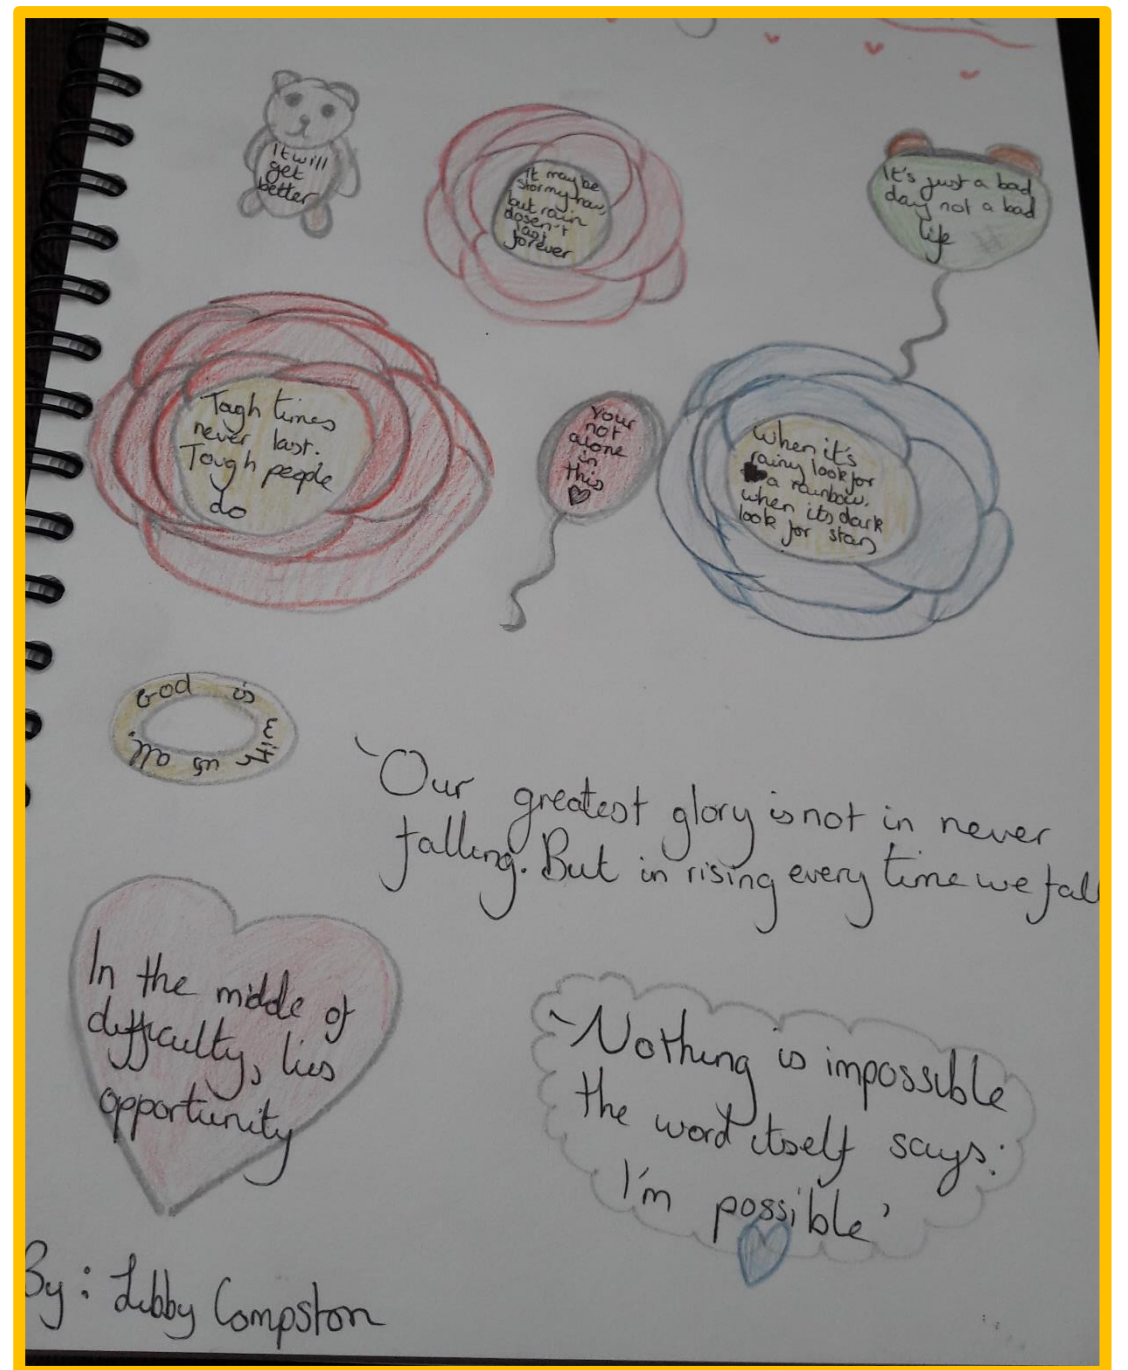 It will
get
better
It may be
stormy now,
but rain
dosen't
last
forever
It's just a bad
day not a bad
life
Tough times
never last.
Tough people
do
Your
not
alone
in
this
When it's
rainy look for
a rainbow.
when its dark
look for stars
God is
with
us all.
'Our greatest glory is not in never
falling. But in rising every time we fall
In the middle of
difficulty, lies
opportunity
'Nothing is impossible
the word itself says:
I'm possible'
By: Libby Compston